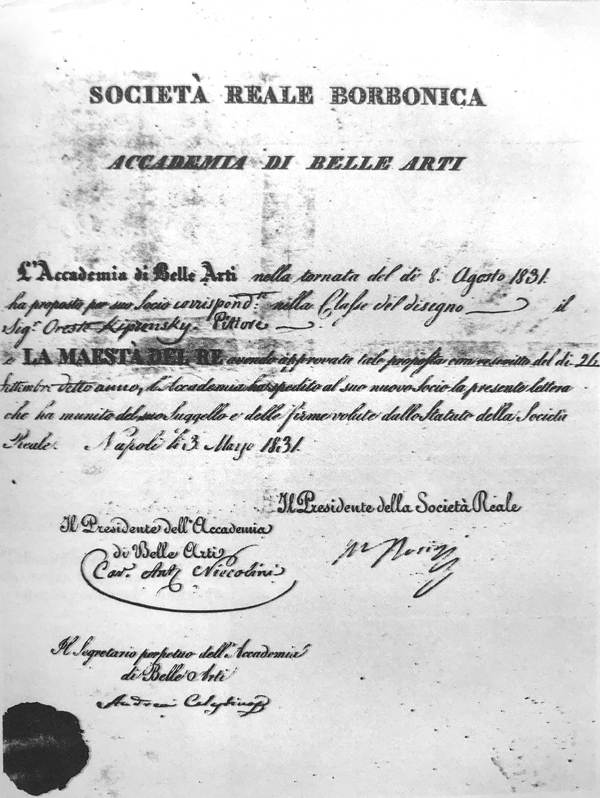 SOCIETÀ REALE BORBONICA
ACCADEMIA DI BELLE ARTI
L'Accademia di Belle Arti nella tornata del dì 8. Agosto 1831.
ha proposto per suo Socio corrispond.te nella Classe del disegno il
Sig.r Oreste Kiprensky. Pittore
e LA MAESTÀ DEL RE avendo approvata tale proposta con rescritto del dì 26.
settembre detto anno, l'Accademia ha spedito al suo nuovo Socio la presente lettera
che ha munito del suo Suggello e delle firme volute dallo Statuto della Società
Reale. Napoli li 3. Marzo 1831.
Il Presidente della Società Reale
Il Presidente dell'Accademia
di Belle Arti
Cav. Ant. Niccolini
Il Segretario perpetuo dell'Accademia
di Belle Arti
Andrea